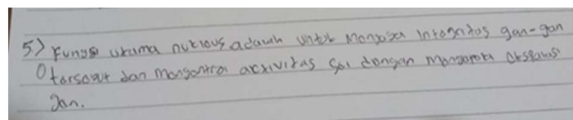 5) Fungsi utama nukleus adalah untuk menjaga integritas gen-gen
tersebut dan mengontrol aktivitas sel dengan mengontrol ekspresi
gen.